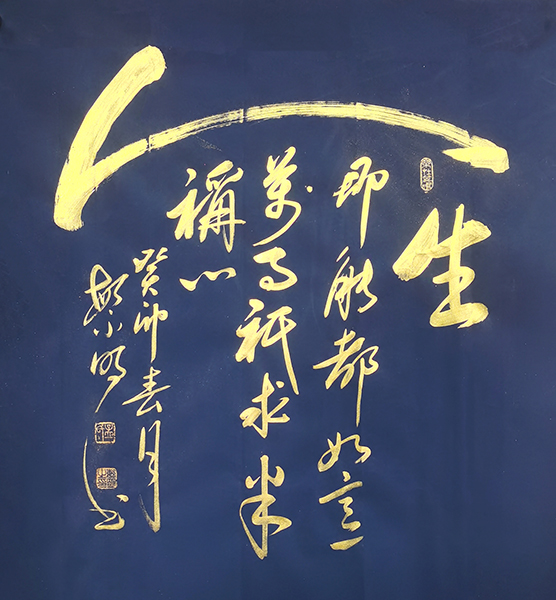 人生
那能都如意
萬事祇求半
稱心
癸卯春月
小明书